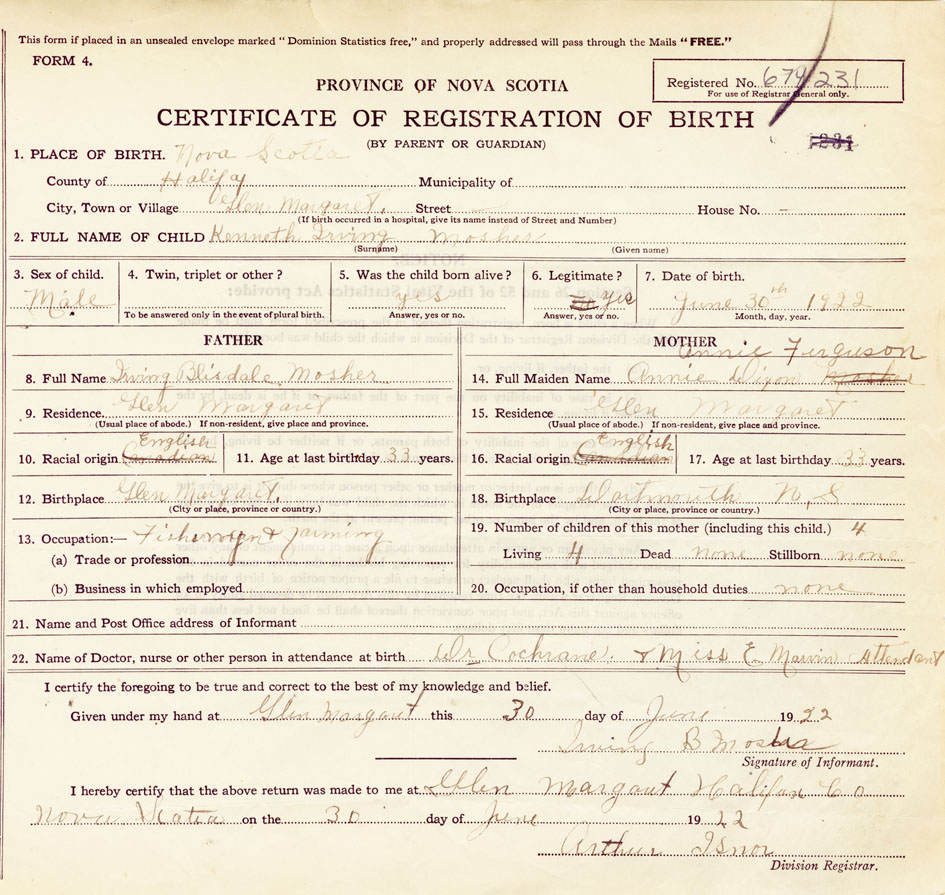 This form if placed in an unsealed envelope marked "Dominion Statistics free," and properly addressed will pass through the Mails "FREE."
FORM 4.
Registered No. 679 231
For use of Registrar General only.
PROVINCE OF NOVA SCOTIA
CERTIFICATE OF REGISTRATION OF BIRTH
(BY PARENT OR GUARDIAN)
1231
1. PLACE OF BIRTH. Nova Scotia
County of Halifax Municipality of
City, Town or Village Glen Margaret. Street — House No. -
(If birth occurred in a hospital, give its name instead of Street and Number)
2. FULL NAME OF CHILD Kenneth Irving Mosher
(Surname) (Given name)
3. Sex of child. 4. Twin, triplet or other? 5. Was the child born alive? 6. Legitimate? 7. Date of birth.
Male yes yes June 30th 1922
To be answered only in the event of plural birth. Answer, yes or no. Answer, yes or no. Month, day, year.
FATHER MOTHER
Annie Ferguson
8. Full Name Irving Blisdale Mosher 14. Full Maiden Name Annie Dixon Mosher
9. Residence. Glen Margaret 15. Residence Glen Margaret
(Usual place of abode.) If non-resident, give place and province. (Usual place of abode.) If non-resident, give place and province.
English English
10. Racial origin Canadian 11. Age at last birthday 33 years. 16. Racial origin Canadian 17. Age at last birthday 33 years.
12. Birthplace Glen Margaret. 18. Birthplace Dartmouth N, S
(City or place, province or country.) (City or place, province or country.)
13. Occupation:— Fisherman & farming 19. Number of children of this mother (including this child.) 4
(a) Trade or profession Living 4 Dead none Stillborn none
(b) Business in which employed 20. Occupation, if other than household duties none
21. Name and Post Office address of Informant
22. Name of Doctor, nurse or other person in attendance at birth Dr Cochrane. & Miss E Marvin Attendant
I certify the foregoing to be true and correct to the best of my knowledge and belief.
Given under my hand at Glen Margaret this 30 day of June 1922
Irving B Mosher
Signature of Informant.
I hereby certify that the above return was made to me at Glen Margaret Halifax Co
Nova Scotia on the 30 day of June 1922
Arthur Isnor
Division Registrar.